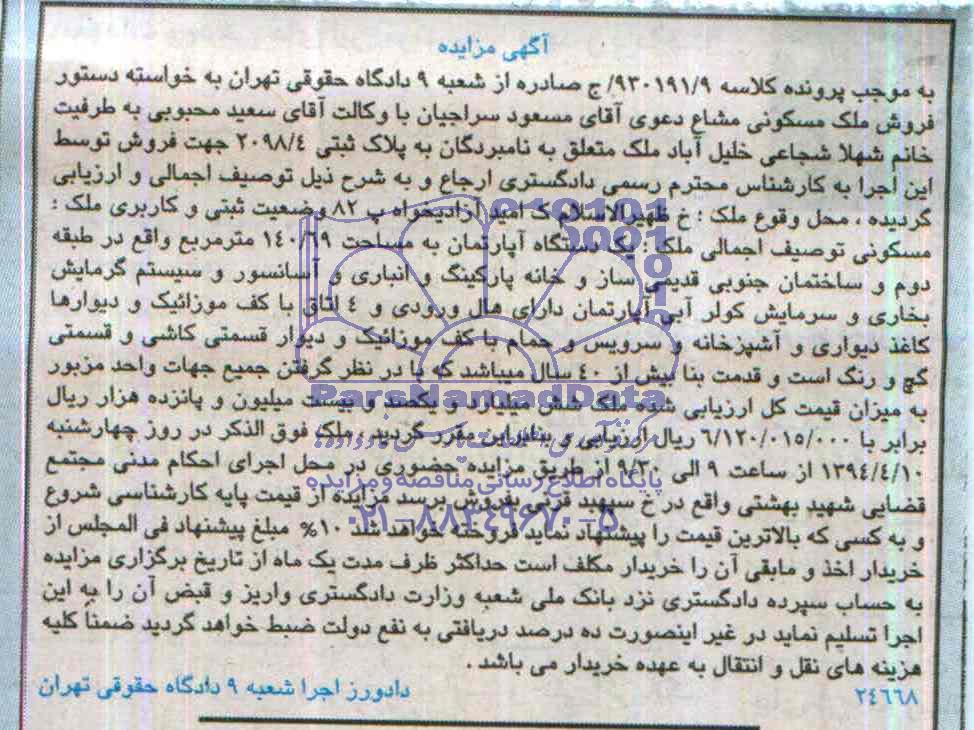 آگهی مزایده
به موجب پرونده کلاسه ۹۳۰۱۹۱/۹/ ج صادره از شعبه ۹ دادگاه حقوقی تهران به خواسته دستور
فروش ملک مسکونی مشاع دعوی آقای مسعود سراجیان با وکالت آقای سعید محبوبی به طرفیت
خانم شهلا شجاعی خلیل آباد ملک متعلق به نامبردگان به پلاک ثبتی ۲۰۹۸/٤ جهت فروش توسط
این اجرا به کارشناس محترم رسمی دادگستری ارجاع و به شرح ذیل توصیف اجمالی و ارزیابی
گردیده ، محل وقوع ملک : خ ظهیرالاسلام ک امید آزادیخواه پ ۸۲ وضعیت ثبتی و کاربری ملک :
مسکونی توصیف اجمالی ملک : یک دستگاه آپارتمان به مساحت ۱٤۰/٦۹ مترمربع واقع در طبقه
دوم و ساختمان جنوبی قدیمی ساز و خانه پارکینگ و انباری و آسانسور و سیستم گرمایش
بخاری و سرمایش کولر آبی آپارتمان دارای هال ورودی و ٤ اتاق با کف موزائیک و دیوارها
کاغذ دیواری و آشپزخانه و سرویس و حمام با کف موزائیک و دیوار قسمتی کاشی و قسمتی
گچ و رنگ است و قدمت بنا بیش از ٤۰ سال میباشد که با در نظر گرفتن جمیع جهات واحد مزبور
به میزان قیمت کل ارزیابی شده ملک شش میلیارد و یکصد و بیست میلیون و پانزده هزار ریال
برابر با ٦/۱۲۰/۰۱۵/۰۰۰ ریال ارزیابی و بنابراین مقرر گردید ، ملک فوق الذکر در روز چهارشنبه
۱۳۹٤/٤/۱۰ از ساعت ۹ الی ۹/۳۰ از طریق مزایده حضوری در محل اجرای احکام مدنی مجتمع
قضایی شهید بهشتی واقع در خ سپهبد قرنی بفروش برسد مزایده از قیمت پایه کارشناسی شروع
و به کسی که بالاترین قیمت را پیشنهاد نماید فروخته خواهد شد ۱۰% مبلغ پیشنهاد فی المجلس از
خریدار اخذ و مابقی آن را خریدار مکلف است حداکثر ظرف مدت یک ماه از تاریخ برگزاری مزایده
به حساب سپرده دادگستری نزد بانک ملی شعبه وزارت دادگستری واریز و قبض آن را به این
اجرا تسلیم نماید در غیر اینصورت ده درصد دریافتی به نفع دولت ضبط خواهد گردید ضمناً کلیه
هزینه های نقل و انتقال به عهده خریدار می باشد .
۲٤٦٦۸ دادورز اجرا شعبه ۹ دادگاه حقوقی تهران
ParsNamadData
پایگاه اطلاع رسانی مناقصه و مزایده
۰۲۱-۸۸۳٤۹٦۷۰-۵